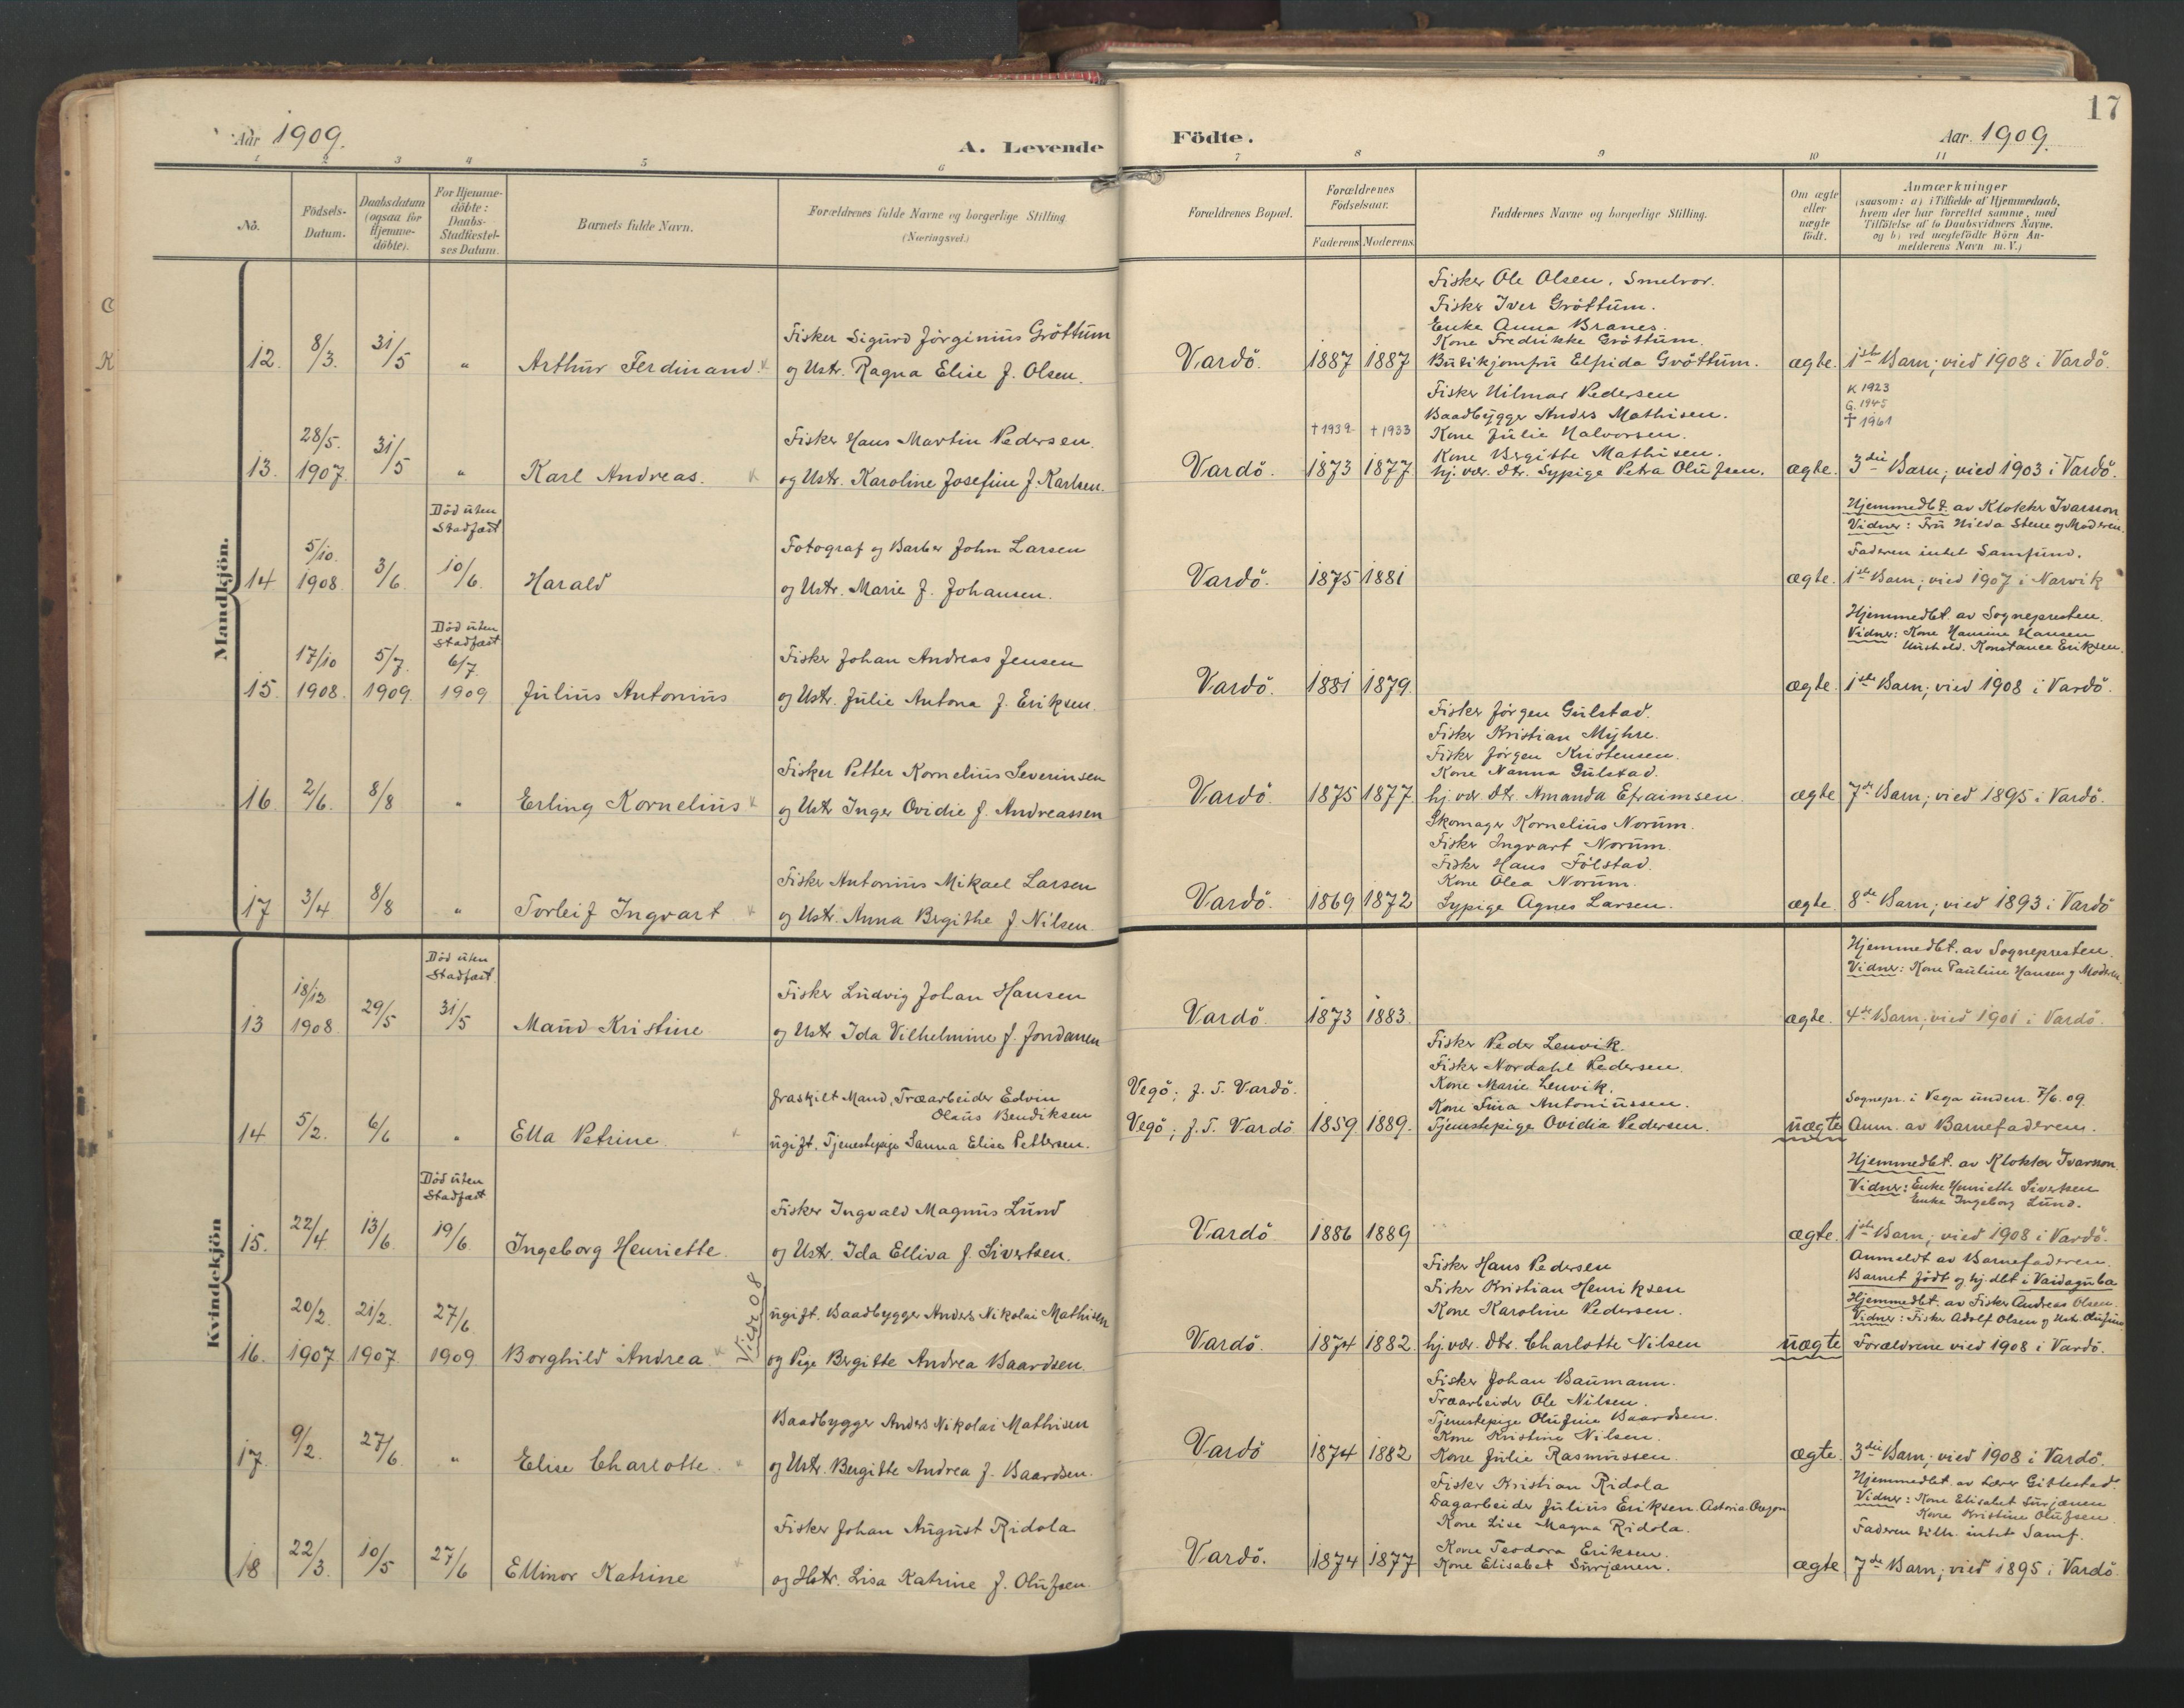 17
Aar 1909.
A. Levende
Födte.
Aar. 1909.
1 2 3 4 5 6 7 8 9 10 11
No.
Födsels-
Datum.
Daabsdatum
(ogsaa for
Hjemme-
döbte).
For Hjemme-
döbte:
Daabs-
Stadfæstel-
ses Datum.
Barnets fulde Navn.
Forældrenes fulde Navne og borgerlige Stilling
(Næringsvei.)
Forældrenes Bopæl.
Forældrenes
Födselsaar.
Faderens Moderens
Faddernes Navne og borgerlige Stilling.
Om ægte
eller
uægte
födt.
Anmærkninger
(saasom: a) i Tilfælde af Hjemmedaab,
hvem der har forrettet samme, med
Tilföielse af to Daabsvidners Navne.
og b) ved uægtefödte Börn An-
melderens Navn m. V.)
Mandkjön.
12. 8/3. 31/5 " Arthur Ferdinand.
Fisker Sigurd Jörginius Gröttum
og Ustr. Ragna Elise f. Olsen.
Vardö. 1887 1887
Fisker Ole Olsen, Smelror.
Fisker Iver Gröttum.
Enke Anna Branes.
Kone Fredrikke Gröttum.
Butikjomfru Elfrida Gröttum.
ægte. 1ste Barn; vied 1908 i Vardö.
K 1923
G. 1945
† 1961
13. 28/5. 1907. 31/5 " Karl Andreas.
Fisker Hans Martin Pedersen
og Ustr. Karoline Josefine f. Karlsen.
† 1939 † 1933
Vardö. 1873 1877
Fisker Hilmar Pedersen
Baadbygger Anders Mathisen.
Kone Julie Halvorsen.
Kone Bergitte Mathisen.
hj. vær. dtr. Sypige Petra Olufsen.
ægte. 3die Barn; vied 1903 i Vardö.
Död uten
Stadfæst
14 5/10. 1908 3/6. 10/6. Harald
Fotograf og Barber John Larsen
og Ustr. Marie f. Johansen.
Vardö. 1875 1881
ægte.
Hjemmedbt. av Klokker Ivarsson
Vidner: Fru Hilda Stene og Moderen.
Faderen intet Samfund.
1ste Barn; vied 1907 i Narvik
Död uten
Stadfæst
15. 17/10 1908. 5/7. 1909. 6/7. 1909 Julius Antonius
Fisker Johan Andreas Jensen
og Ustr. Julie Antona f. Eriksen.
Vardö. 1881 1879.
ægte.
Hjemmedbt. av Sognepresten.
Vidner: Kone Hansine Hansen
Hushold. Konstance Eriksen.
1ste Barn; vied 1908 i Vardö.
16 2/6. 8/8 " Erling Kornelius
Fisker Petter Kornelius Severinsen
og Ustr Inger Ovidie f. Andreassen
Vardö. 1875 1877
Fisker Jörgen Gulstad.
Fisker Kristian Myhre.
Fisker Jörgen Kristensen.
Kone Nanna Gulstad.
hj. vær. dtr. Amanda Efraimsen.
ægte 7de Barn; vied 1895 i Vardö.
17 3/4 8/8 " Torleif Ingvart
Fisker Antonius Mikael Larsen
og Ustr. Anna Brgithe f. Nilsen.
Vardö. 1869 1872
Skomager Kornelius Norum.
Fisker Ingvart Norum.
Fisker Hans Fölstad.
Kone Olea Norum.
Sypige Agnes Larsen.
ægte. 8de Barn; vied 1893 i Vardö
Kvindekjön
Död uten
Stadfæst.
13 18/12 1908. 29/5 31/5 Maud Kristine
Fisker Ludvig Johan Hansen
og Ustr Ida Vilhelmine f. Jordansen
Vardö. 1873 1883.
ægte.
Hjemmedbt. av Sognepresten.
Vidner: Kone Pauline Hansen og Moderen.
4de Barn; vied 1901 i Vardö.
14 5/2. 6/6 " Ella Petrine
fraskilt Mand, Træarbeider Edvin
Olaus Bendiksen
ugift. Tjenestepige Sanna Elise Pettersen.
Vegö; f. T. Vardö.
Vegö; f. T. Vardö 1859 1889.
Fisker Peder Lenvik.
Fisker Nordahl Pedersen.
Kone Marie Lenvik.
Kone Tina Antoniussen.
Tjenestepige Ovidia Pedersen.
uægte
Sognepr. i Vega underr. 7/6. 09.
Anm. av Barnefaderen.
Död uten
Stadfæst
15. 22/4. 13/6. 19/6. Ingeborg Henriette
Fisker Ingvald Magnus Lund
og Ustr. Ida Elliva f. Sivertsen.
Vardö 1886 1889
ægte.
Hjemmedbt. av Klokker Ivarsson.
Vidner: Enke Henriette Sivertsen
Enke Ingeborg Lund.
1ste Barn; vied 1908 i Vardö.
16. 20/2. 1907 21/2. 1907 27/6 1909 Borghild Andrea.
Viede 08
ugift. Baadbygger Anders Nikolai Mathisen
og Pige Brgitte Andrea Baardsen
Vardö. 1874 1882.
Fisker Hans Pedersen
Fisker Kristian Henriksen
Kone Karoline Pedersen.
hj. vær. dtr. Charlotte Nilsen
uægte
Anmeldt av Barnefaderen.
Barnet födt og hj. dbt i Vaidaguba
Hjemmedbt. av Fisker Andreas Olsen.
Vidner: Fisker Adolf Olsen og Ustr. Olufine
Forældrene vied 1908 i Vardö.
17. 9/2. 27/6. " Elise Charlotte.
Baadbygger Anders Nikolai Mathisen
og Ustr. Bergitte Andrea f. Baardsen.
Vardö 1874 1882
Fisker Johan Baumann.
Træarbeider Ole Nilsen.
Tjenestepige Olufine Baardsen.
Kone Kristine Nilsen.
Kone Julie Rasmussen.
ægte. 3die Barn; vied 1908 i Vardö.
18 22/3. 10/5 27/6 Ellinor Katrine
Fisker Johan August Ridola
og Hstr. Lisa Katrine f. Olufsen.
Vardö. 1874 1877
Fisker Kristian Ridola
Dagarbeider Julius Eriksen. Astoria. Oregon
Kone Lise Magna Ridola.
Kone Teodora Eriksen.
Kone Elisabet Surjænen.
ægte
Hjemmedbt. av Lærer Gittestad.
Vidner: Kone Elisabet Surjænen
Kone Kristine Olufsen.
Faderen tilh. intet Samf.
7de Barn; vied 1895 i Vardö